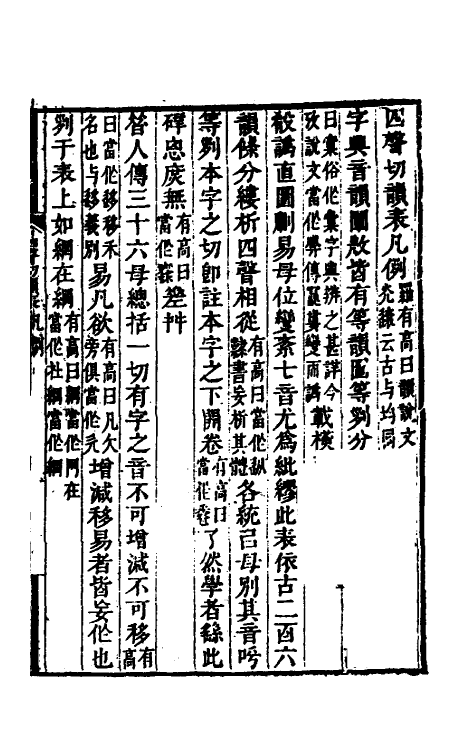 四聲切韻表凡例羅有高曰韻說文無錄云古与均同
字典音韻闡微皆有等韻圖等列分
曰彙俗作彙字典辨之甚詳今攷說文當作㬥傳寫冀變而譌載橫
殽譌直圖劃易母位變紊七音尤爲紕繆此表依古二百六
韻條分縷析四聲相從有高曰當作從隸書妄析其體各統己母別其音呼
等列本字之切卽註本字之下開卷有高曰當作卷了然學者繇此
確患庋無有高曰當作差差舛
昝人傳三十六母總括一切有字之音不可增減不可移有高
曰當作迻移禾名也与移義別易凡欲有高曰凡欠旁俱當作旡增減移易者皆妄作也
列于表上如網在綱有高曰網當作网在當作扗綱當作綱